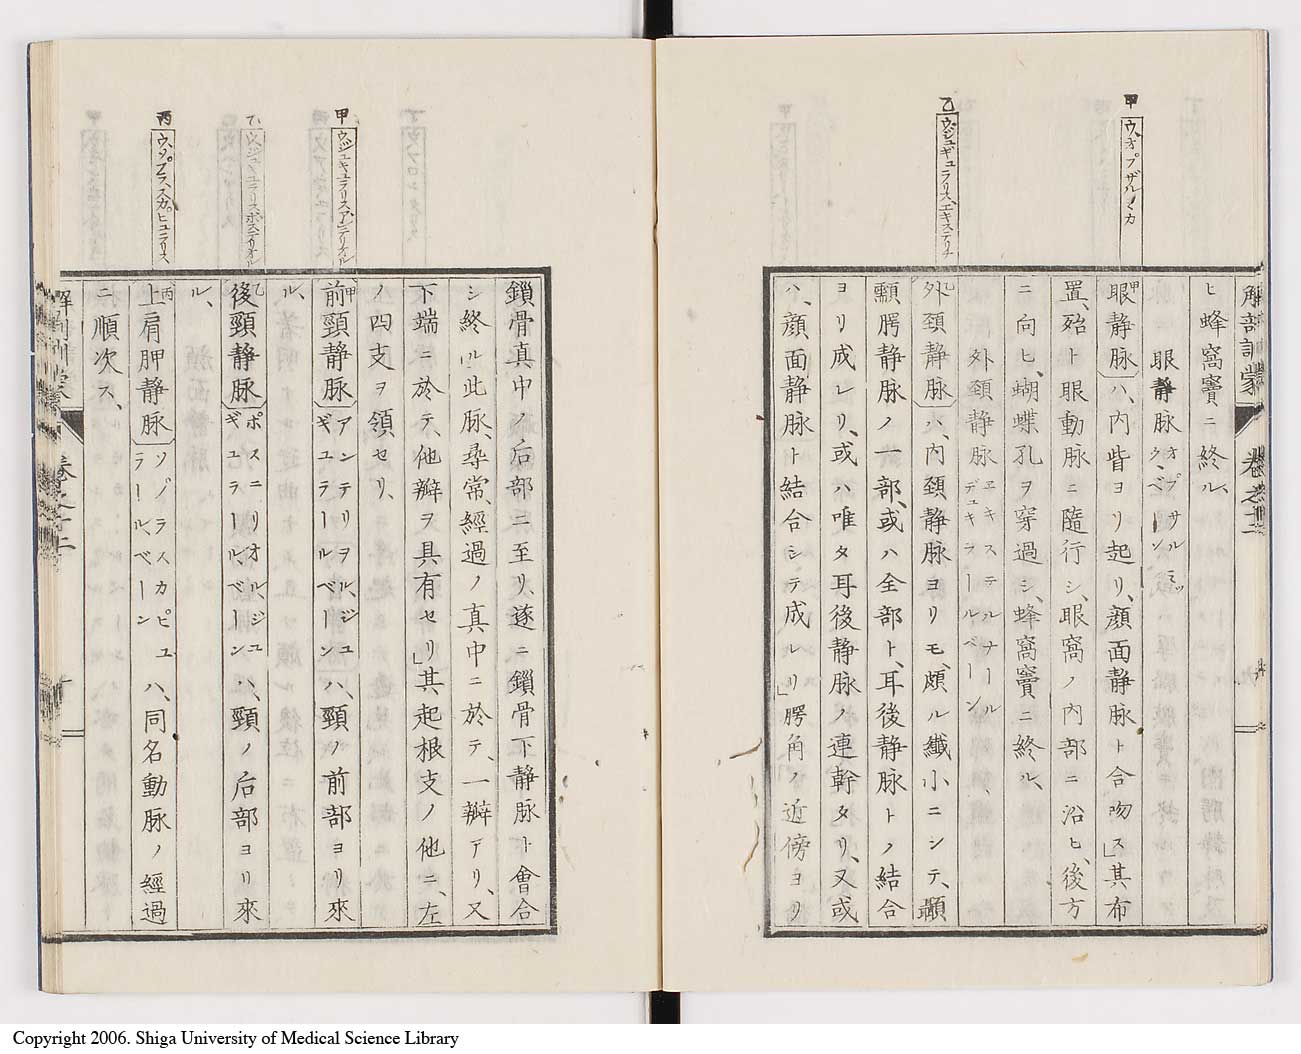 甲 ウ、オプザルミカ
乙 ウ、ジュギュラリス、エキステリナ
解剖訓蒙 卷之十二
ヒ蜂窩竇ニ終ル、
眼静脉 オプサルミッ ク、ベーン
甲眼静脉ハ、内眥ヨリ起リ、顔面静脉ト合吻ス」其布
置、殆ト眼動脉ニ隨行シ、眼窩ノ内部ニ沿ヒ、後方
ニ向ヒ、蝴蝶孔ヲ穿過シ、蜂窩竇ニ終ル、
外頚静脉 エキステルナール ヂュキラールベーン
乙外頚静脉ハ、内頚静脉ヨリモ、頗ル纖小ニシテ、顳
顬腭静脉ノ一部、或ハ全部ト、耳後静脉トノ結合
ヨリ成レリ、或ハ唯タ耳後静脉ノ連幹タリ、又或
ハ、顔面静脉ト結合シテ成レリ」腭角ノ近傍ヨリ
甲 ウ、ジュギュラリス、アンテリオル
乙 ウ、ジュギュラリス、ポステリオル
丙 ウ、ソプラ、スカピュラリス、
鎖骨真中ノ后部ニ至リ、遂ニ鎖骨下静脉ト會合
シ終ル」此脉、尋常、經過ノ真中ニ於テ、一瓣アリ、又
下端ニ於テ、他瓣ヲ具有セリ」其起根支ノ他ニ、左
ノ四支ヲ領セリ、
甲前頸静脉 アンテリヲル、ジュ ギュラールベーン ハ、頸ノ前部ヨリ來
ル、
乙後頸静脉 ポステリオル、ジュ ギュラール、ベーン ハ、頸ノ后部ヨリ來
ル、
丙上肩胛静脉 ソプラスカピュ ラールベーン ハ、同名動脉ノ經過
ニ順次ス、
解剖訓蒙 卷之十二
Copyright 2006. Shiga University of Medical Science Library